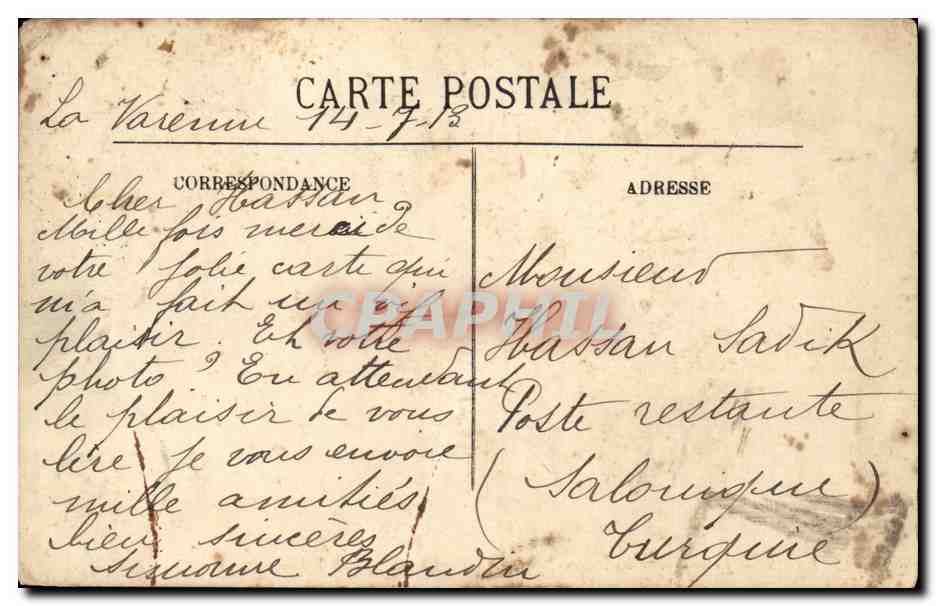 CARTE POSTALE
La Varenne 14-7-13
CORRESPONDANCE
Cher Hassan
Mille fois merci de
votre jolie carte qui
m'a fait un vif
plaisir. Et votre
photo ? En attendant
le plaisir de vous
lire je vous envoie
mille amitiés
bien sincères
Simonne Blandin
ADRESSE
Monsieur
Hassan Sadik
Poste restante
(Salonique)
Turquie
CPAPHIL